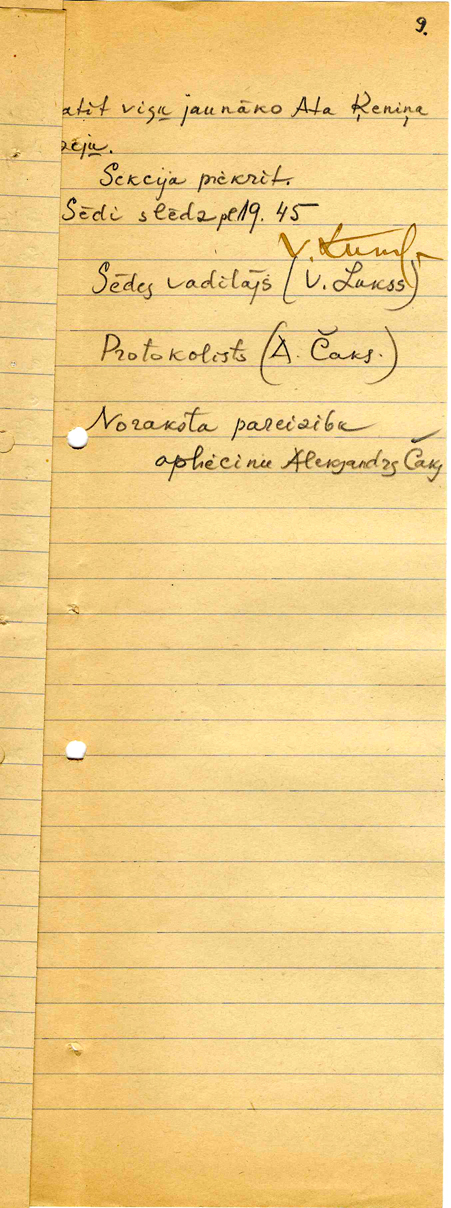 9.
atīt viņu jaunāko Ata Ķeniņa
zēju.
Sekcija piekrīt.
Sēdi slēdz pl 19. 45
Sēdes vadītājs (V. Lukss)
Protokolists (A. Čaks.)
Noraksta pareizību
apliecinu Aleksandrs Čaks